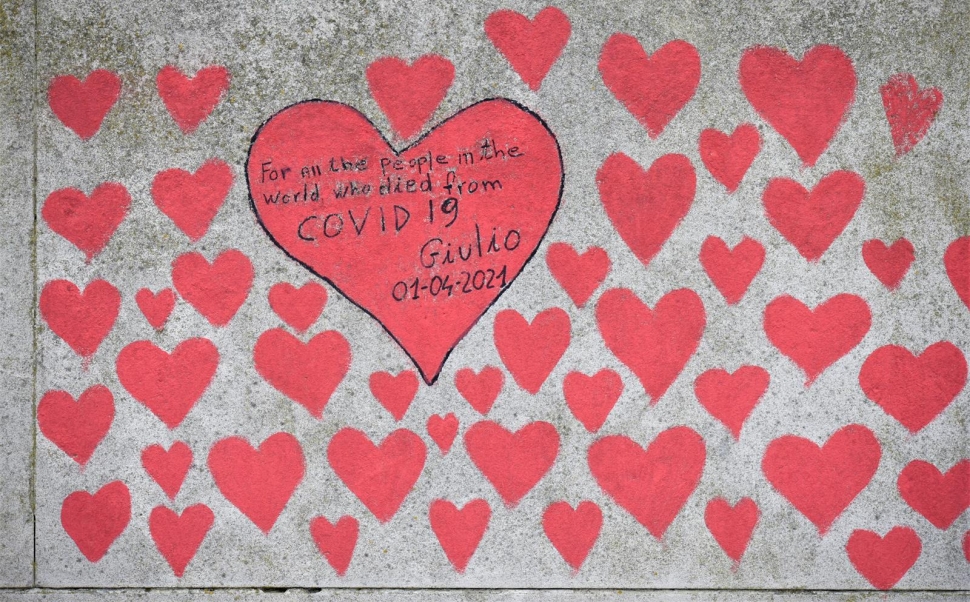 For all the People in the
World, who died from
COVID 19
Giulio
01-04-2021